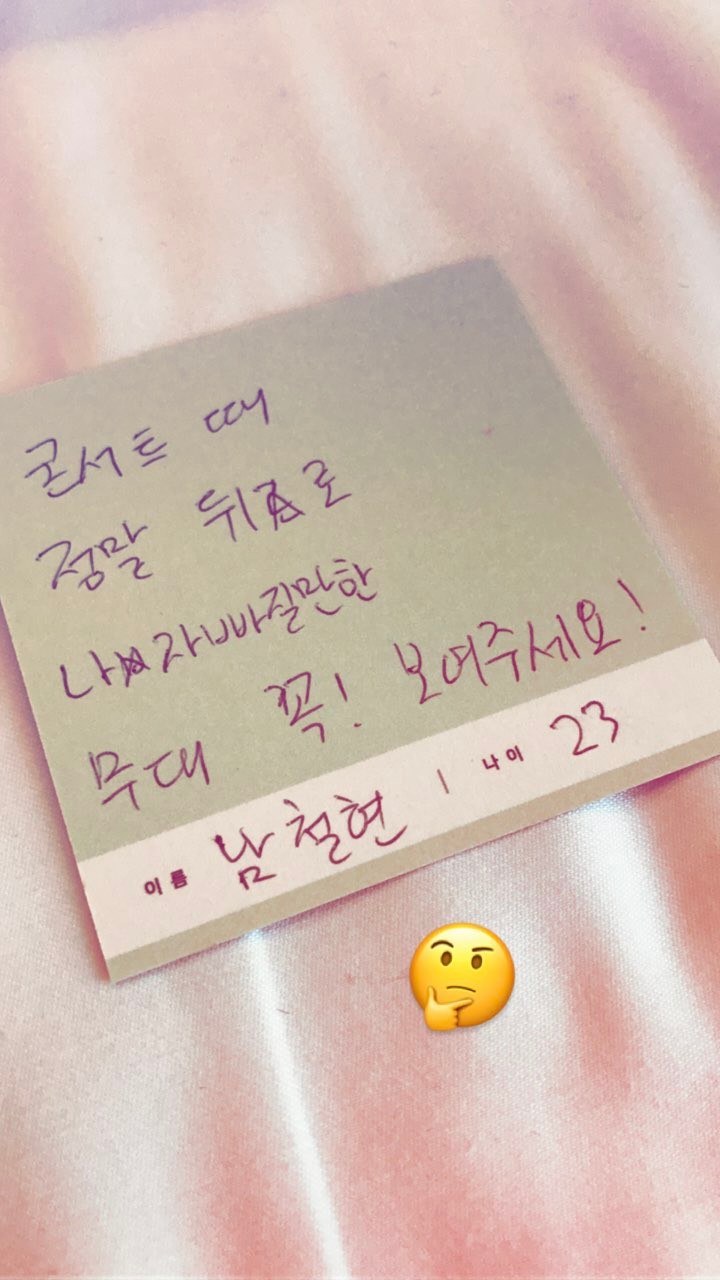 콘서트 때
정말 뒤로
나자빠질만한
무대 꼭! 보여주세요!
이름 남철현 | 나이 23